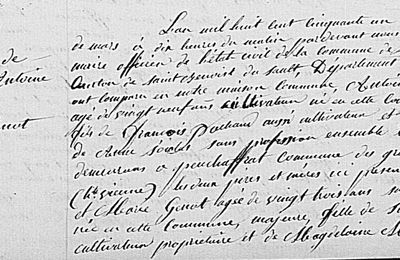 L'an mil huit cent cinquante un
de mars à dix heures du matin pardevant nous
maire officier de l'état civil de la commune de
canton de saint benoist du sault, Département
ont comparu en notre maison commune, Antoine
agé de vingt neuf ans cultivateur né en cette
fils de François aussi cultivateur et
de Anne sans profession ensemble
demeurans à commune des
(hte vienne) les deux pères et mères en présence
et Marie Genot agée de vingt trois ans
née en cette commune, majeure, fille de
cultivateur propriétaire et de Magdeleine
de
Antoine